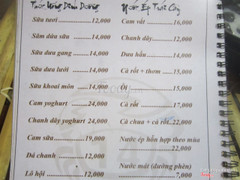 Thức Uống Dinh Dưỡng
Sữa tươi 12,000
Sâm dứa sữa 14,000
Sữa dưa gang 14,000
Sữa dưa lưới 14,000
Sữa khoai môn 14,000
Cam yoghurt 24,000
Chanh dây yoghurt 24,000
Cam sữa 19,000
Đá chanh 12,000
Lô hội 12,000
Nước Ép Trái Cây
Cam vắt 16,000
Chanh dây 12,000
Dưa hấu 14,000
Cà rốt + thơm 15,000
Ổi 15,000
Cà rốt 17,000
Cà chua + cà rốt 22,000
Nước ép hỗn hợp theo mùa
22,000
Nước mát (đường phèn)
7,000